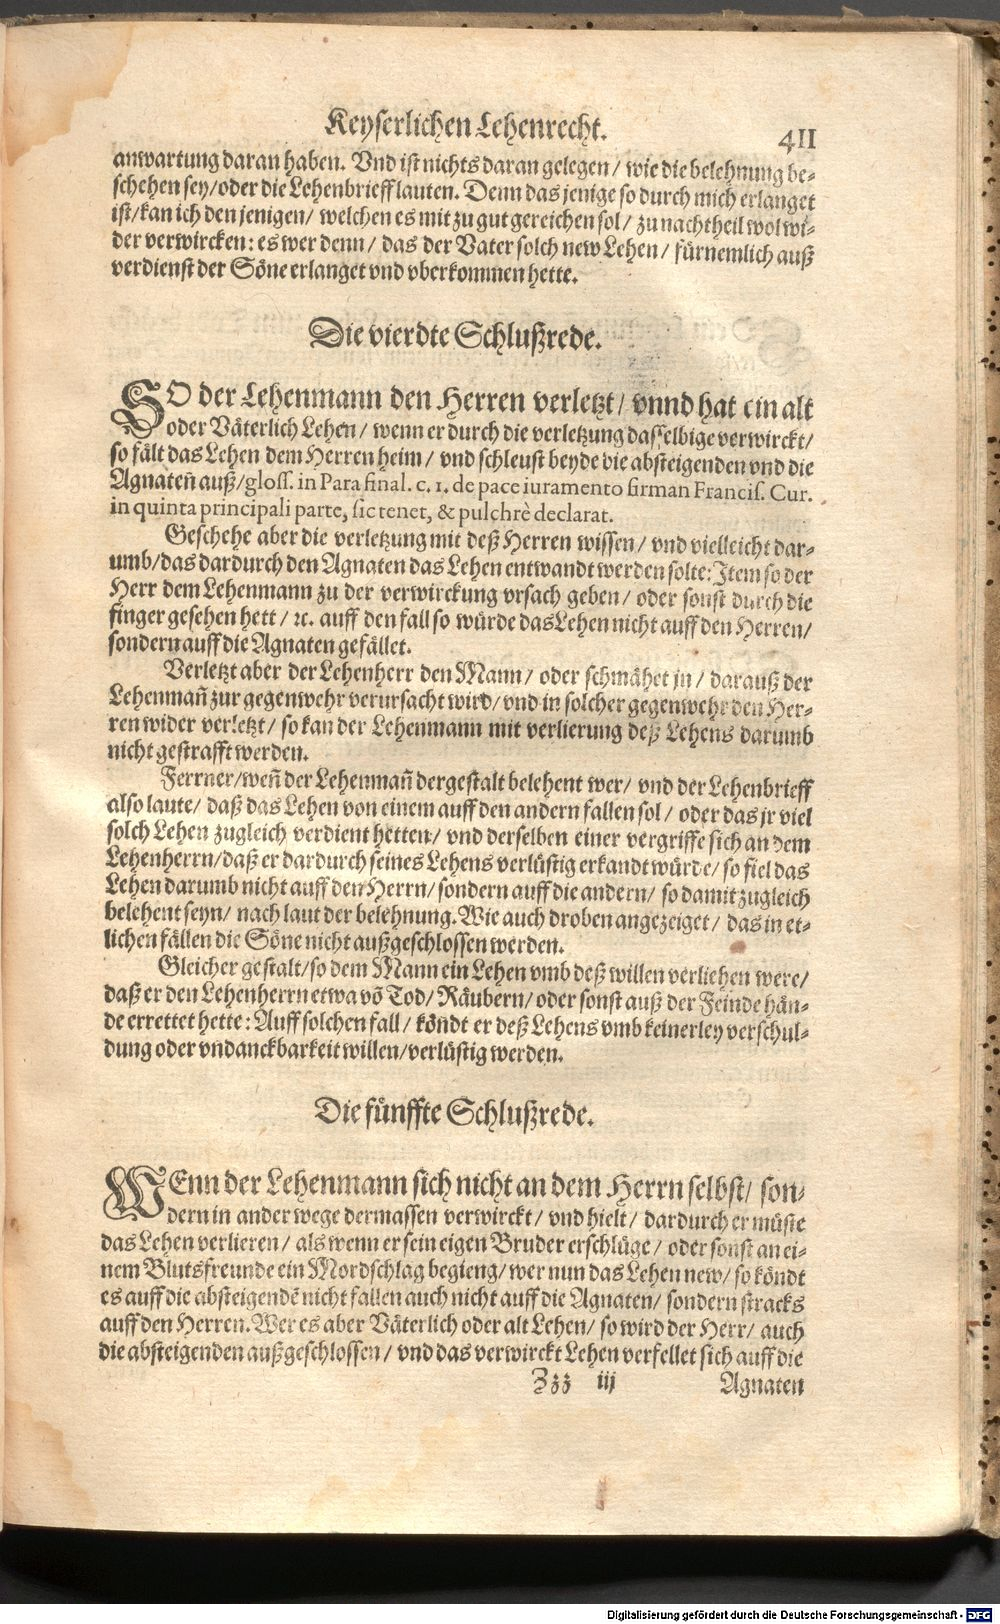 Keyserlichen Lehenrecht. 411
anwartung daran haben. Vnd ist nichts daran gelegen / wie die belehnung be-
schehen sey / oder die Lehenbrieff lauten. Denn das jenige so durch mich erlanget
ist / kan ich den jenigen / welchen es mit zu gut gereichen sol / zu nachtheil wol wi-
der verwircken: es wer denn / das der Vater solch new Lehen / fürnemlich auß
verdienst der Söne erlanget vnd vberkommen hette.
Die vierdte Schlußrede.
SO der Lehenmann den Herren verletzt / vnnd hat ein alt
oder Väterlich Lehen / wenn er durch die verletzung dasselbige verwirckt /
so fält das Lehen dem Herren heim / vnd schleust beyde die absteigenden vnd die
Agnaten̄ auß / gloss. in Para final. c. 1. de pace iuramento firman Francis. Cur.
in quinta principali parte, sic tenet, & pulchrè declarat.
Geschehe aber die verletzung mit deß Herren wissen / vnd vielleicht dar-
umb / das dardurch den Agnaten das Lehen entwandt werden solte: Item so der
Herr dem Lehenmann zu der verwirckung vrsach geben / oder sonst durch die
finger gesehen hett / ꝛc. auff den fall so würde das Lehen nicht auff den Herren /
sondern auff die Agnaten gefället.
Verletzt aber der Lehenherr den Mann / oder schmähet jn / darauß der
Lehenman̄ zur gegenwehr verursacht wird / vnd in solcher gegenwehr den Her-
ren wider verletzt / so kan der Lehenmann mit verlierung deß Lehens darumb
nicht gestrafft werden.
Ferrner / wen̄ der Lehenman̄ dergestalt belehent wer / vnd der Lehenbrieff
also laute / daß das Lehen von einem auff den andern fallen sol / oder das jr viel
solch Lehen zugleich verdient hetten / vnd derselben einer vergriffe sich an dem
Lehenherrn / daß er dardurch seines Lehens verlüstig erkandt würde / so fiel das
Lehen darumb nicht auff den Herrn / sondern auff die andern / so damit zugleich
belehent seyn / nach laut der belehnung. Wie auch droben angezeiget / das in et-
lichen fällen die Söne nicht außgeschlossen werden.
Gleicher gestalt / so dem Mann ein Lehen vmb deß willen verliehen were /
daß er den Lehenherrn etwa võ Tod / Räubern / oder sonst auß der Feinde hän-
de errettet hette: Auff solchen fall / köndt er deß Lehens vmb keinerley verschul-
dung oder vndanckbarkeit willen / verlüstig werden.
Die fünffte Schlußrede.
WEnn der Lehenmann sich nicht an dem Herrn selbst / son-
dern in ander wege dermassen verwirckt / vnd hielt / dardurch er müste
das Lehen verlieren / als wenn er sein eigen Bruder erschlüge / oder sonst an ei-
nem Blutsfreunde ein Mordschlag begieng / wer nun das Lehen new / so köndt
es auff die absteigendẽ nicht fallen auch nicht auff die Agnaten / sondern stracks
auff den Herren. Wer es aber Väterlich oder alt Lehen / so wird der Herr / auch
die absteigenden außgeschlossen / vnd das verwirckt Lehen verfellet sich auff die
Zzz iij Agnaten
Digitalisierung gefördert durch die Deutsche Forschungsgemeinschaft - DFG